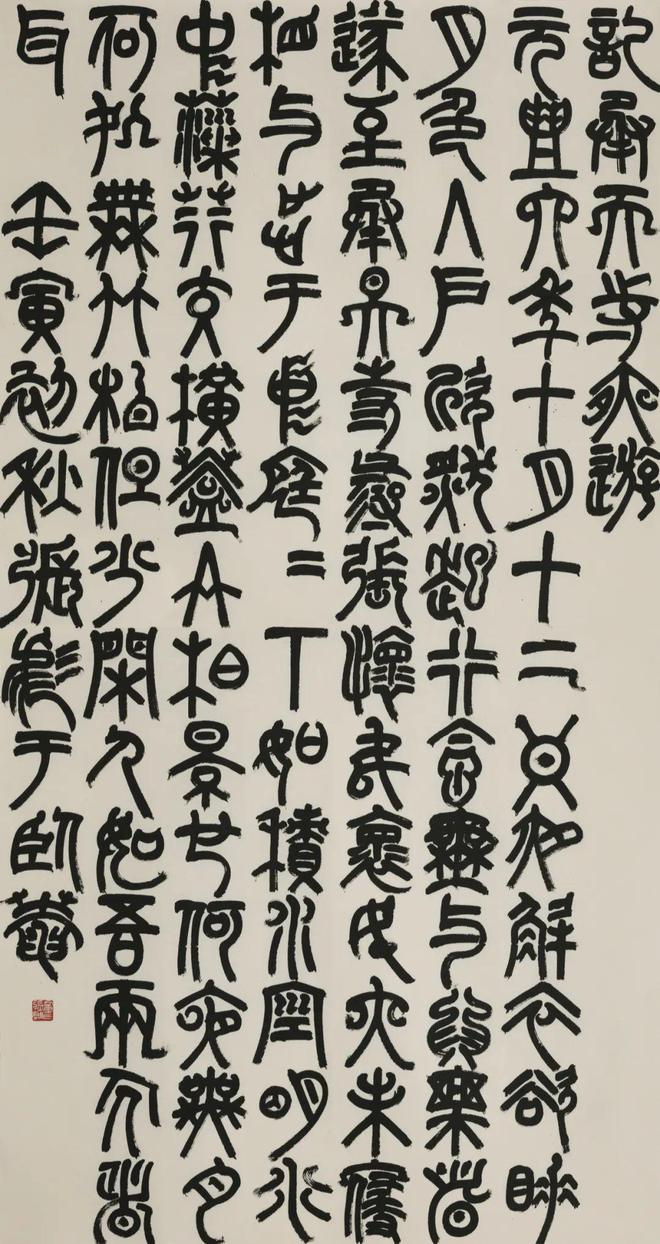 記承天寺夜遊
元豐六年十月十二日夜解衣欲睡
月色入戶欣然起行念無與爲樂者
遂至承天寺尋張懷民懷民亦未寢
相與步于中庭=下如積水空明水
中藻荇交橫蓋竹柏景也何夜無月
何処無竹柏但少閑人如吾兩人者
耳 壬寅初秋張于臥